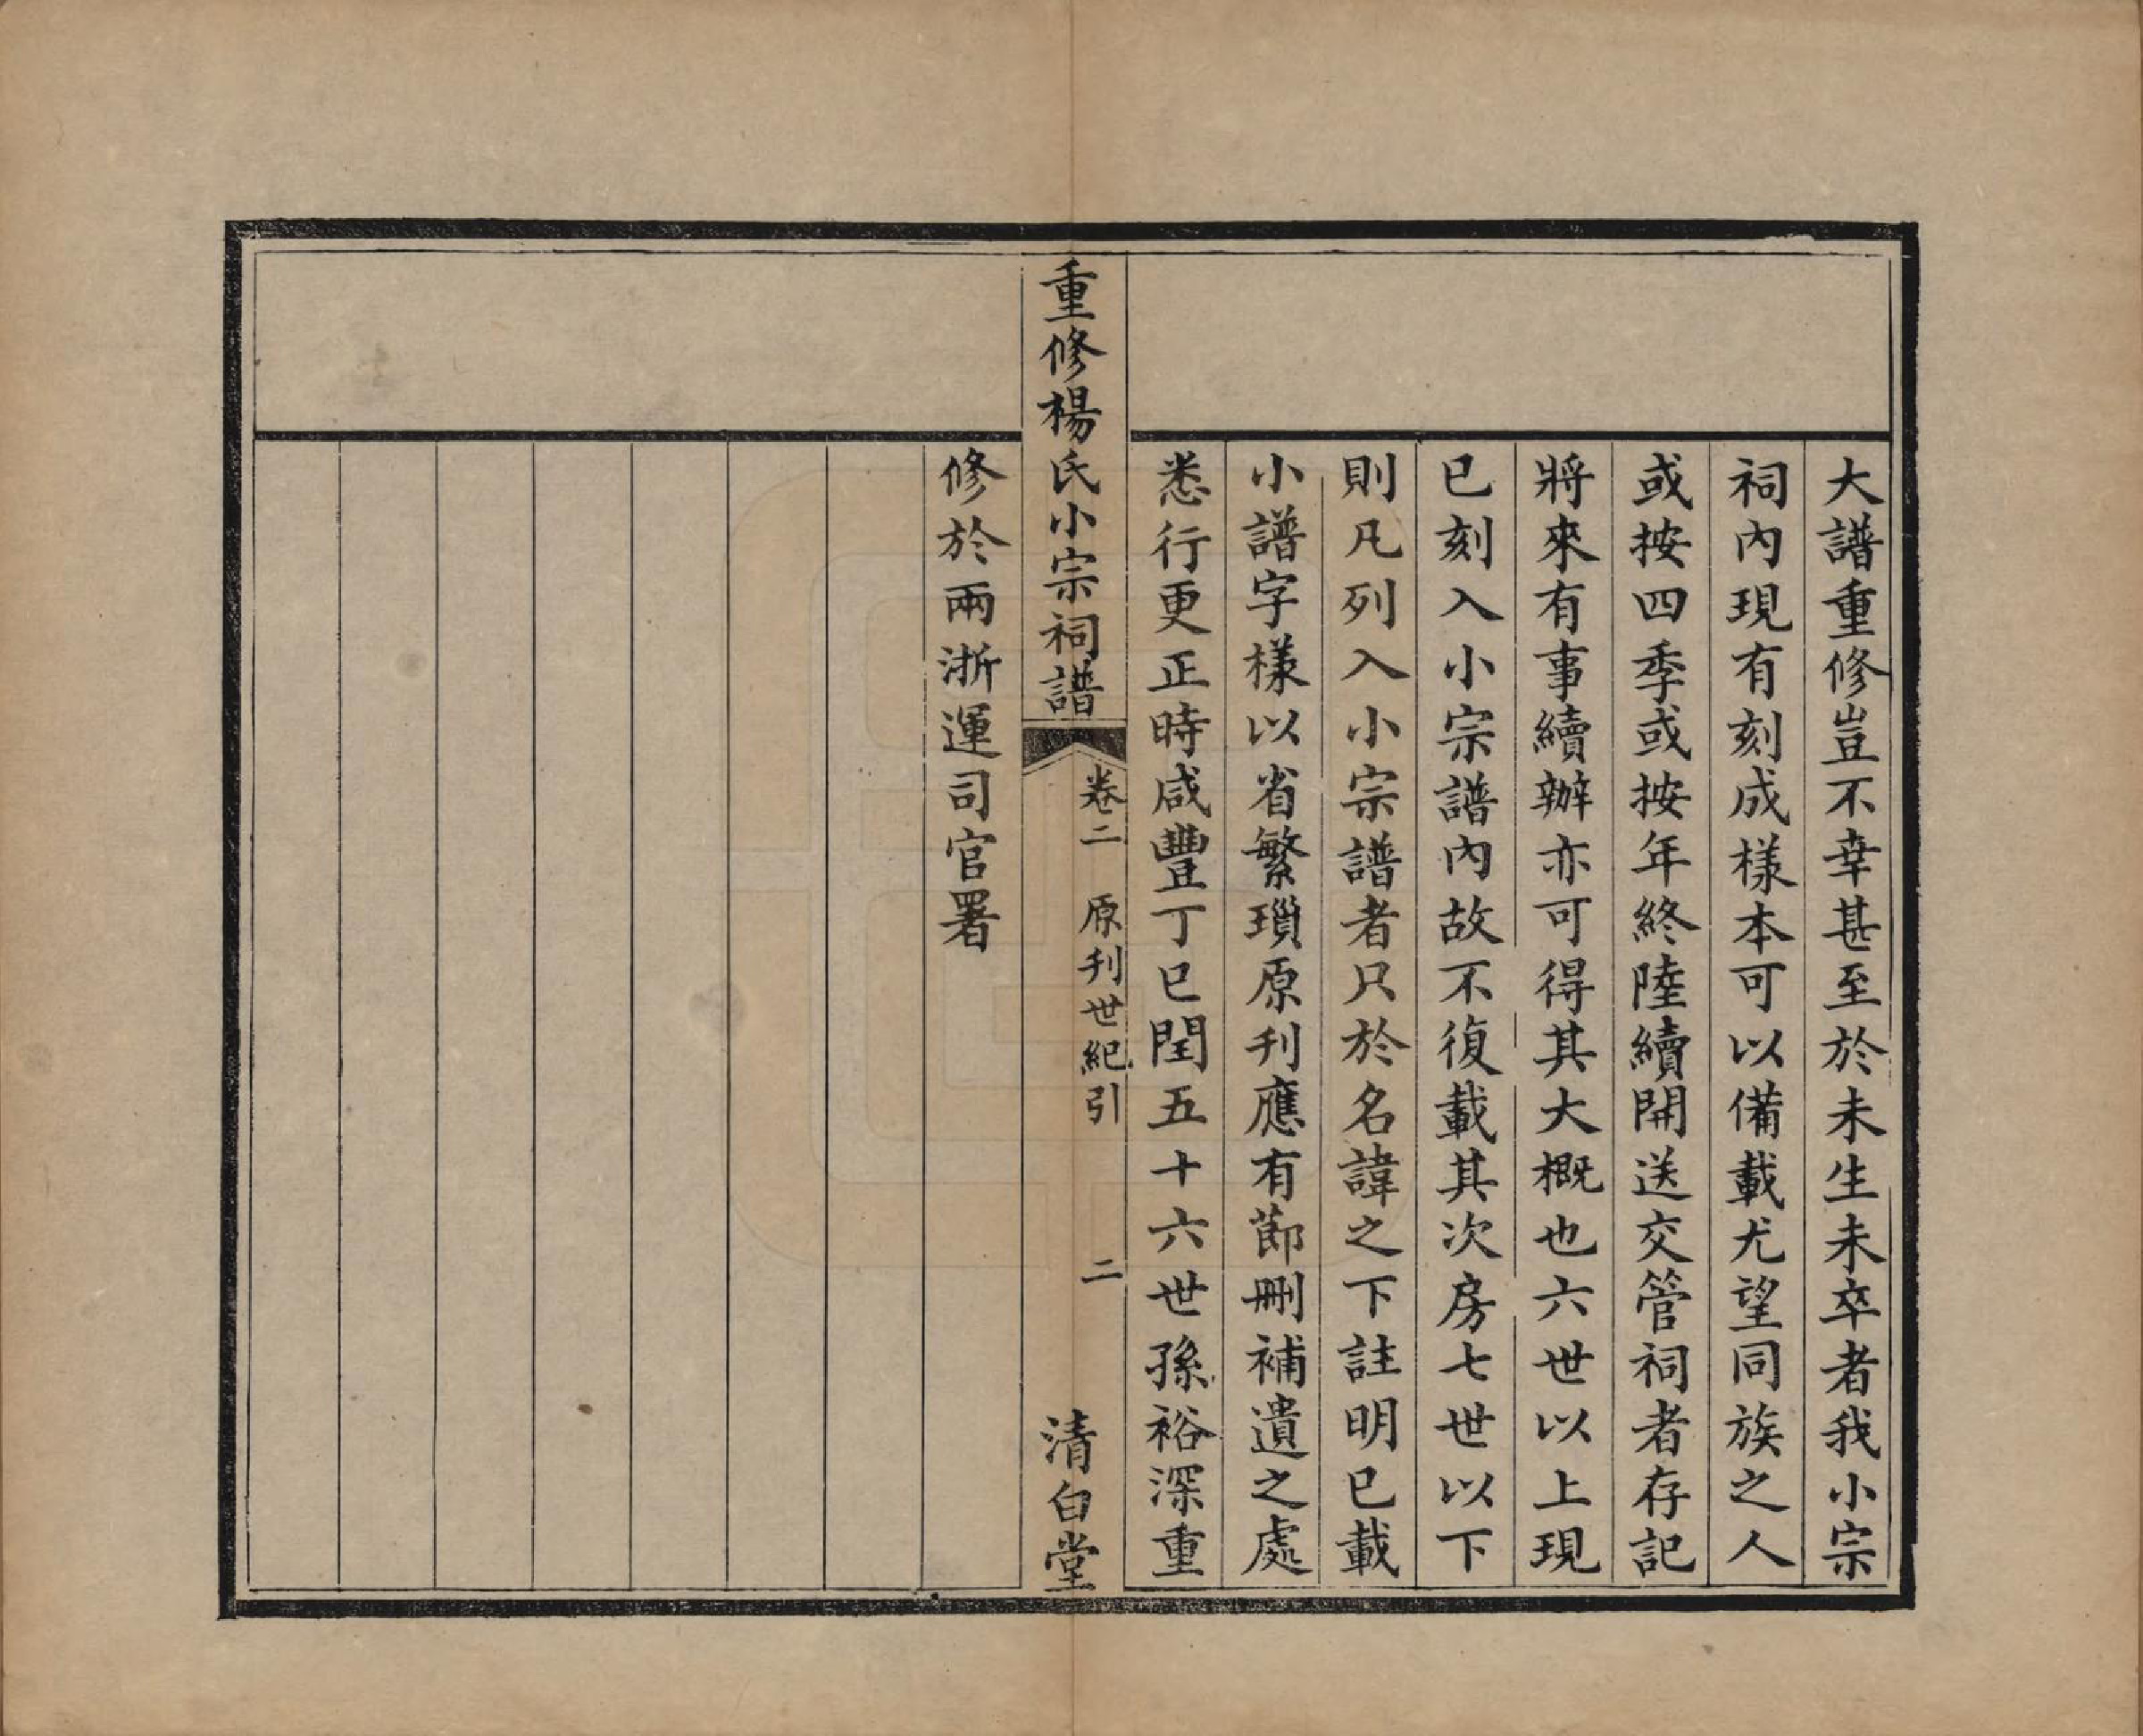 大譜重修豈不幸甚至於未生未卒者我小宗
祠內現有刻成樣本可以備載尤望同族之人
或按四季或按年終陸續開送交管祠者存記
將來有事續辦亦可得其大概也六世以上現
已刻入小宗譜內故不復載其次房七世以下
則凡列入小宗譜者只於名諱之下註明已載
小譜字樣以省繁瑣原刋應有節刪補遺之處
悉行更正時咸豐丁巳閏五十六世孫裕深重
重修楊氏小宗祠譜
卷二 原刋世紀引 二
清白堂
修於兩浙運司官署